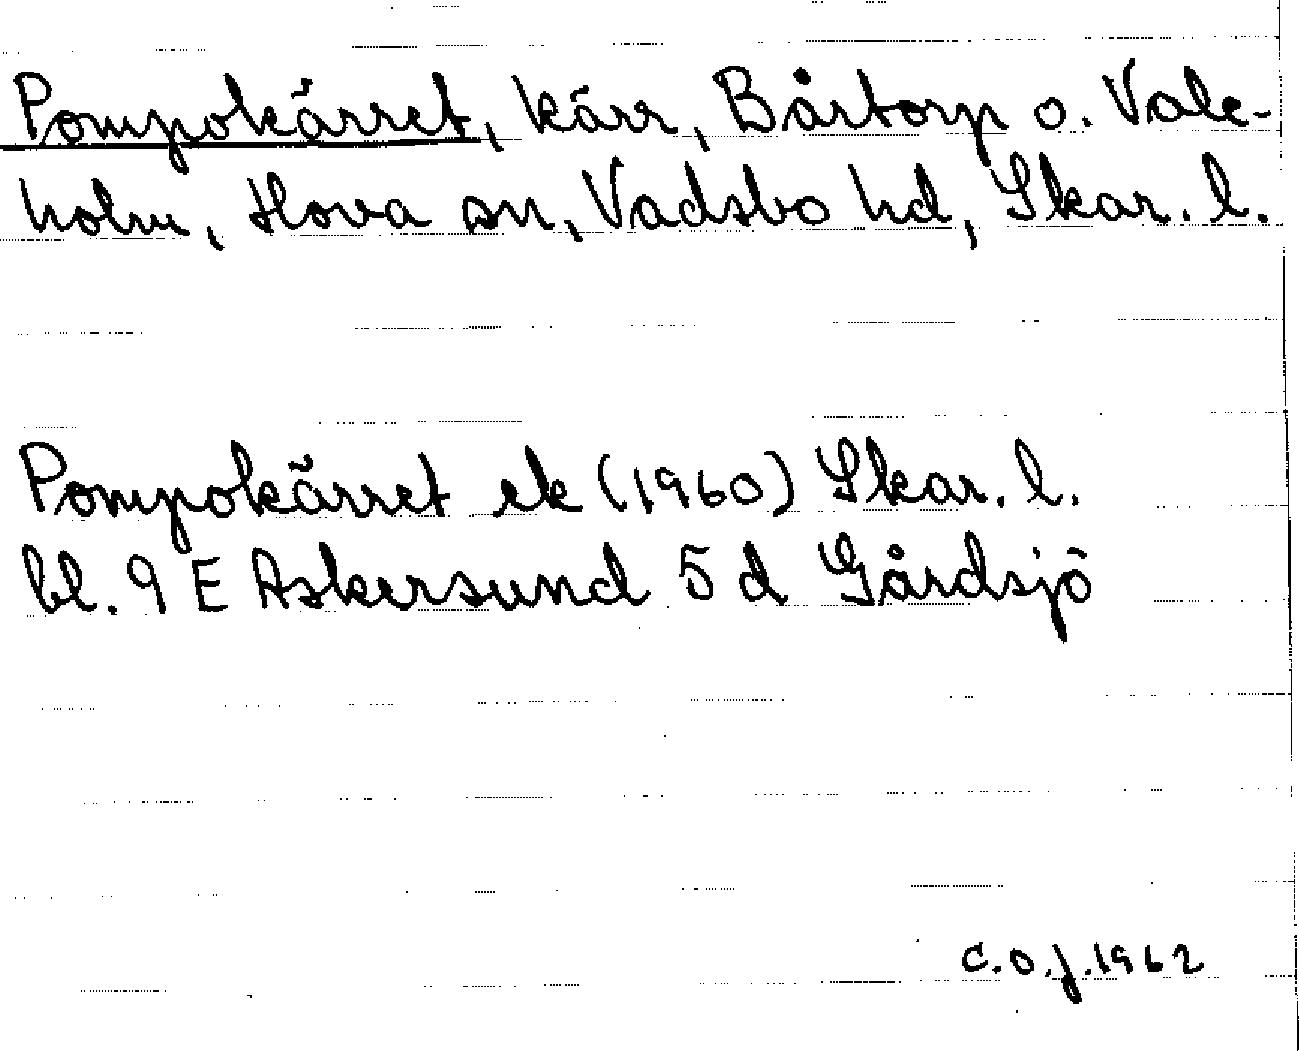 Pompokärret, kärr, Bårtorp o. Vale-
holm, Hova sn, Vadsbo hd, Skar. l.
Pompokärret ek (1960) Skar. l.
bl. 9 E Askersund 5 d Gårdsjö
C.O.J. 1962